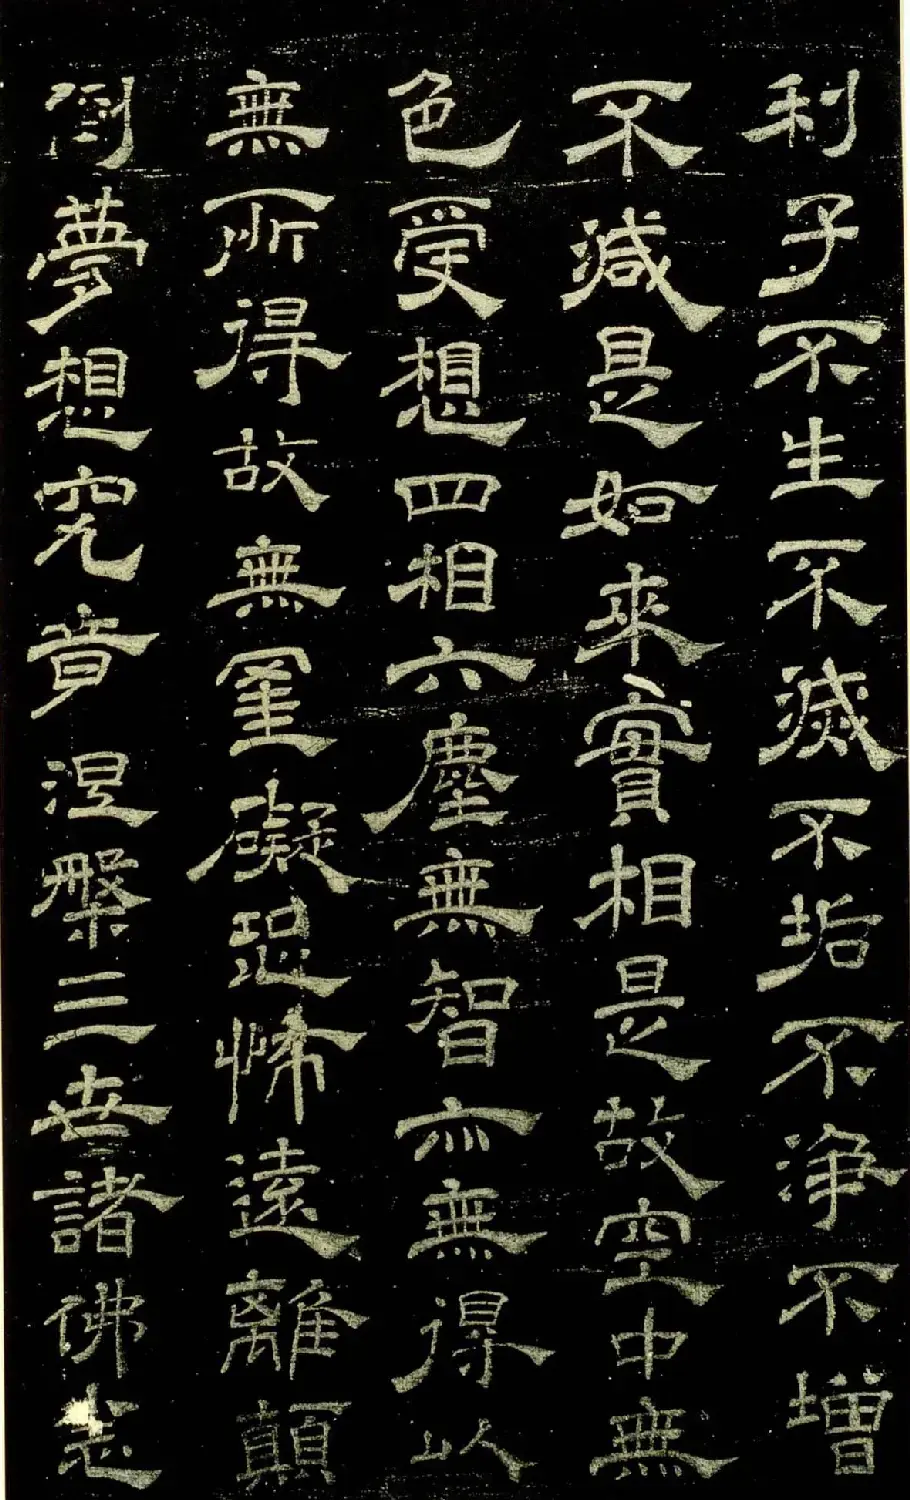 利子不生不滅不垢不淨不增
不減是如來實相是故空中無
色受想四相六塵無智亦無得以
無所得故無罣礙恐怖遠離顛
倒夢想究竟涅槃三世諸佛